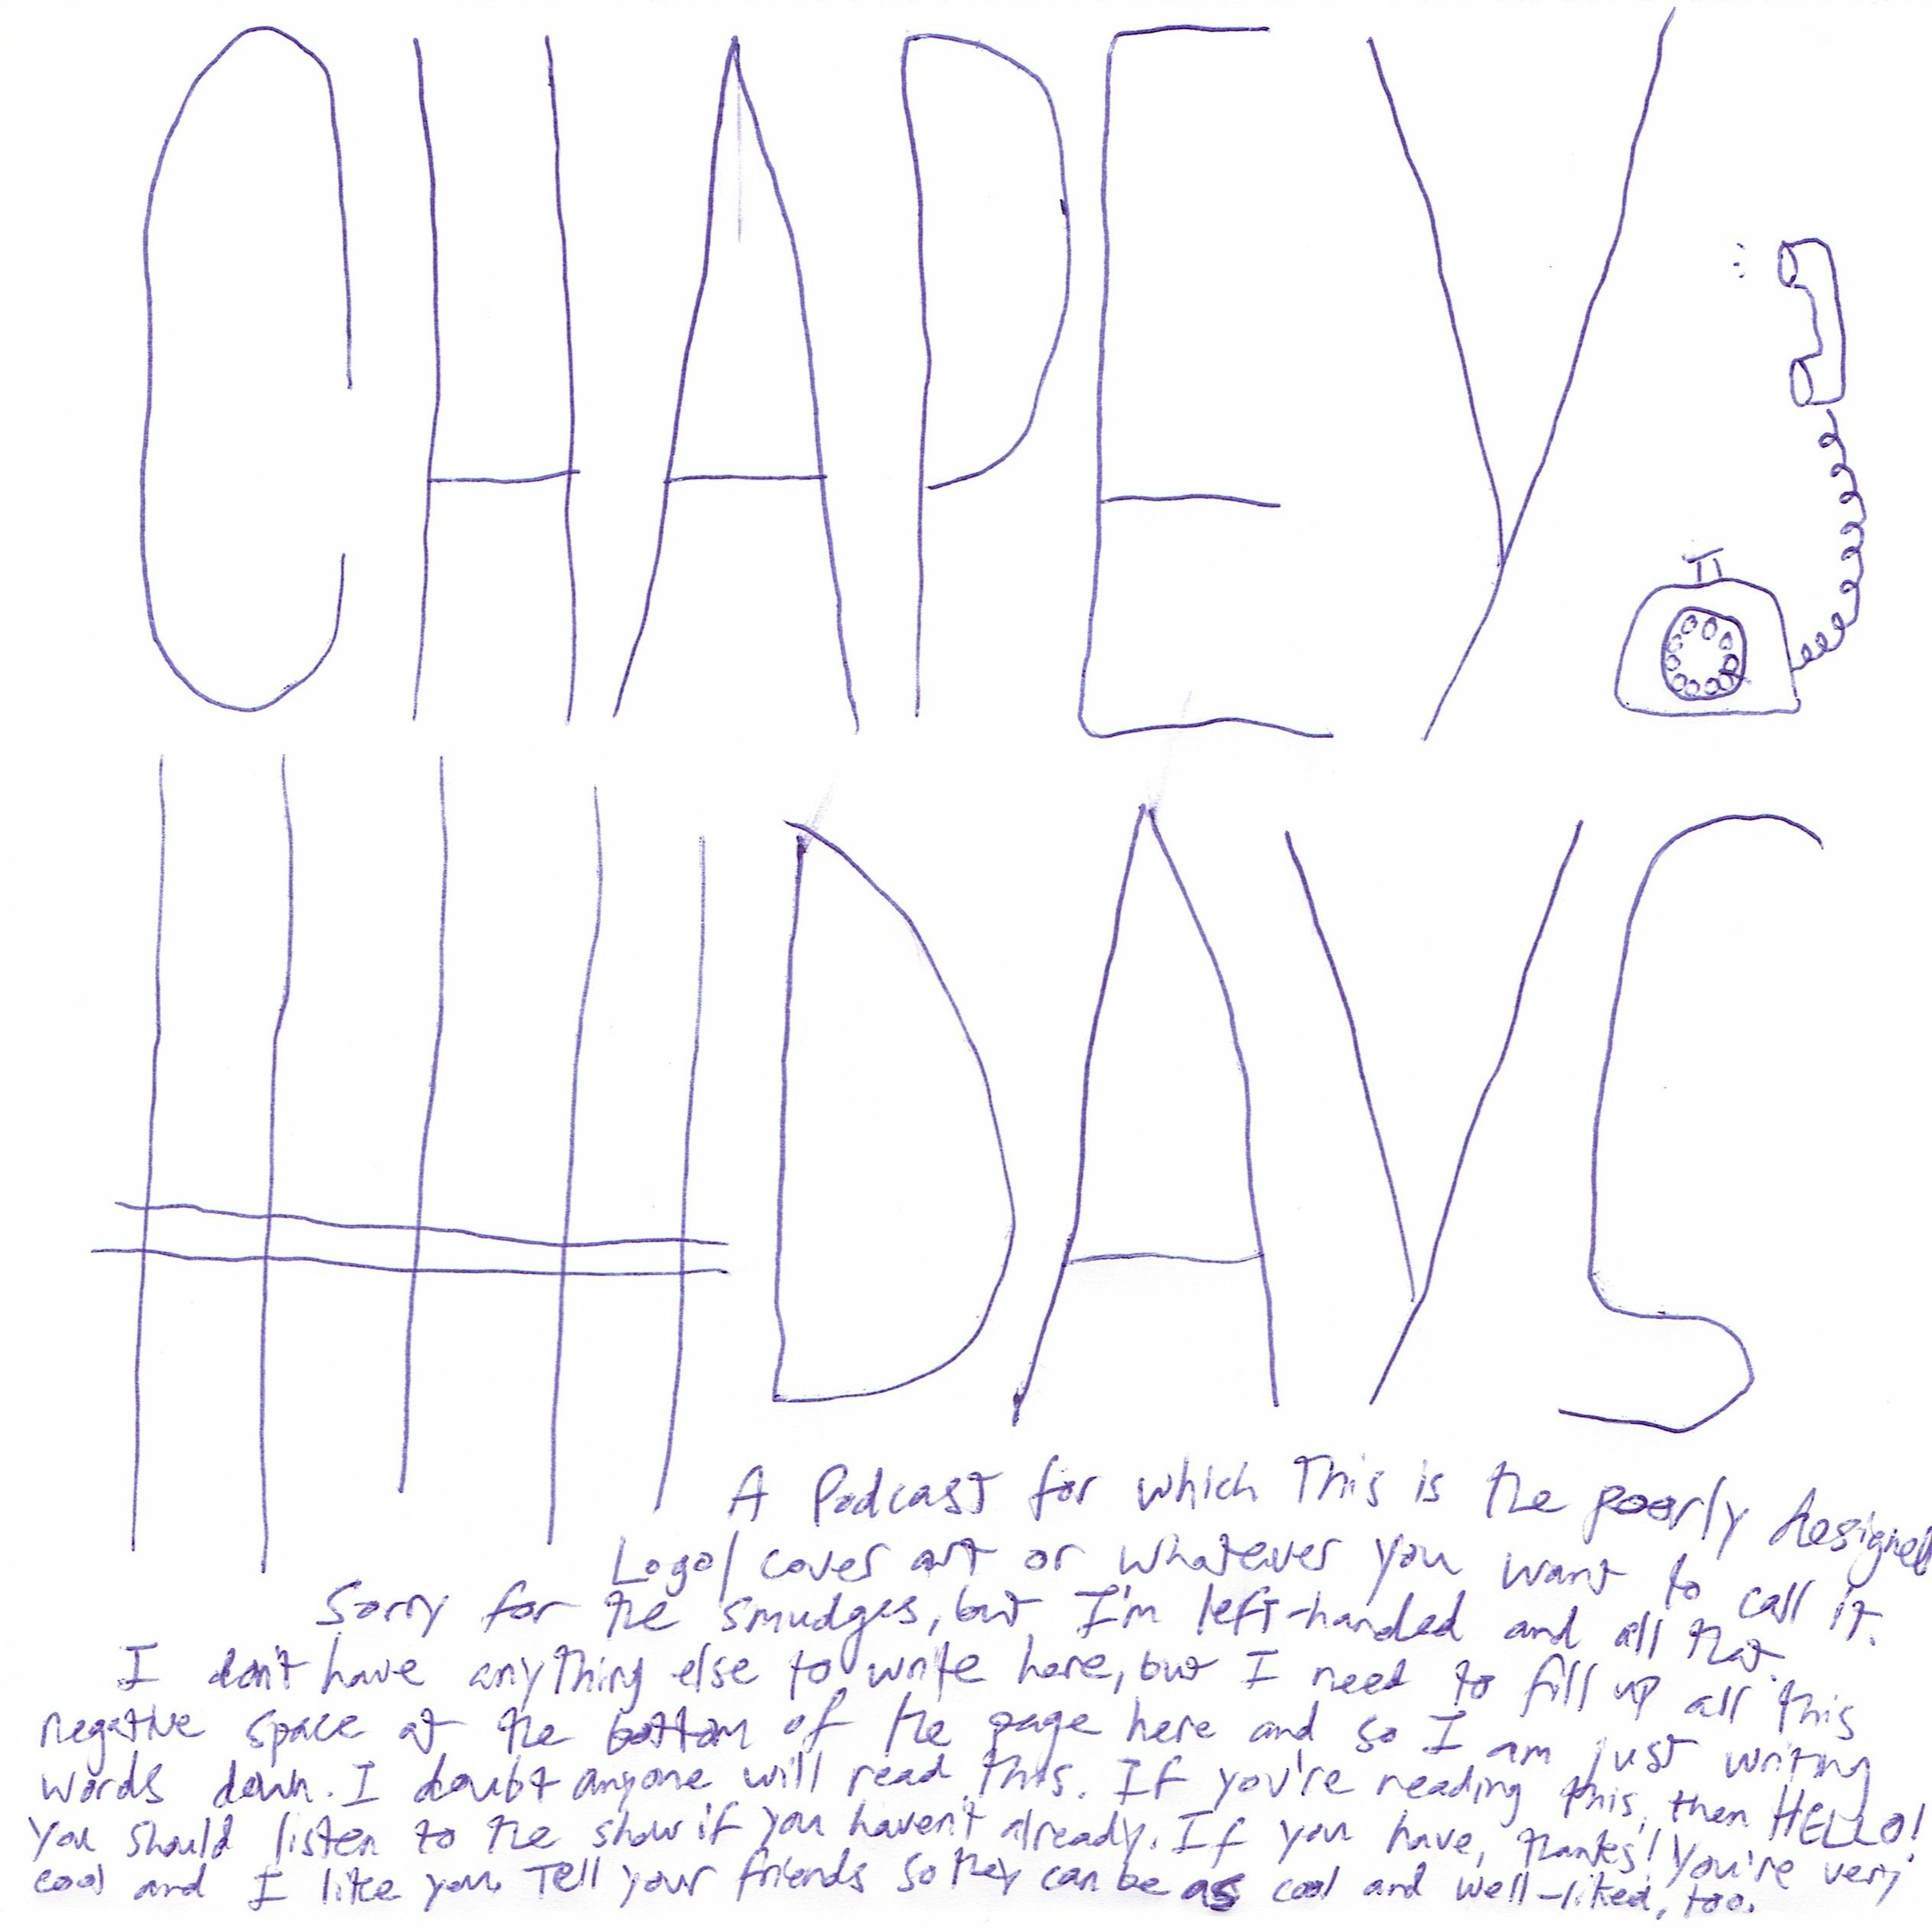 CHAPEY
DAYS
A Podcast for which This is the poorly designed
Logo/cover art or whatever you want to call it.
Sorry for the smudges, but I'm left-handed and all that.
I don't have anything else to write here, but I need to fill up all this
negative space at the bottom of the page here and so I am just writing
words down. I doubt anyone will read this. If you're reading this, then HELLO!
You should listen to the show if you haven't already. If you have, thanks! You're very
cool and I like you. Tell your friends so they can be as cool and well-liked, too.